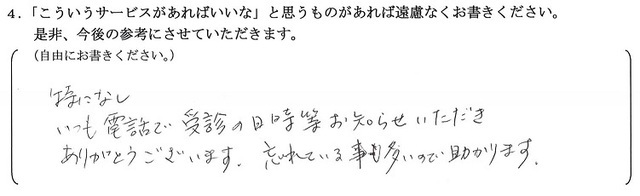 4．「こういうサービスがあればいいな」と思うものがあれば遠慮なくお書きください。
是非、今後の参考にさせていただきます。
（自由にお書きください。）
特になし
いつも電話で受診の日時等お知らせいただき
ありがとうございます。忘れている事も多いので助かります。